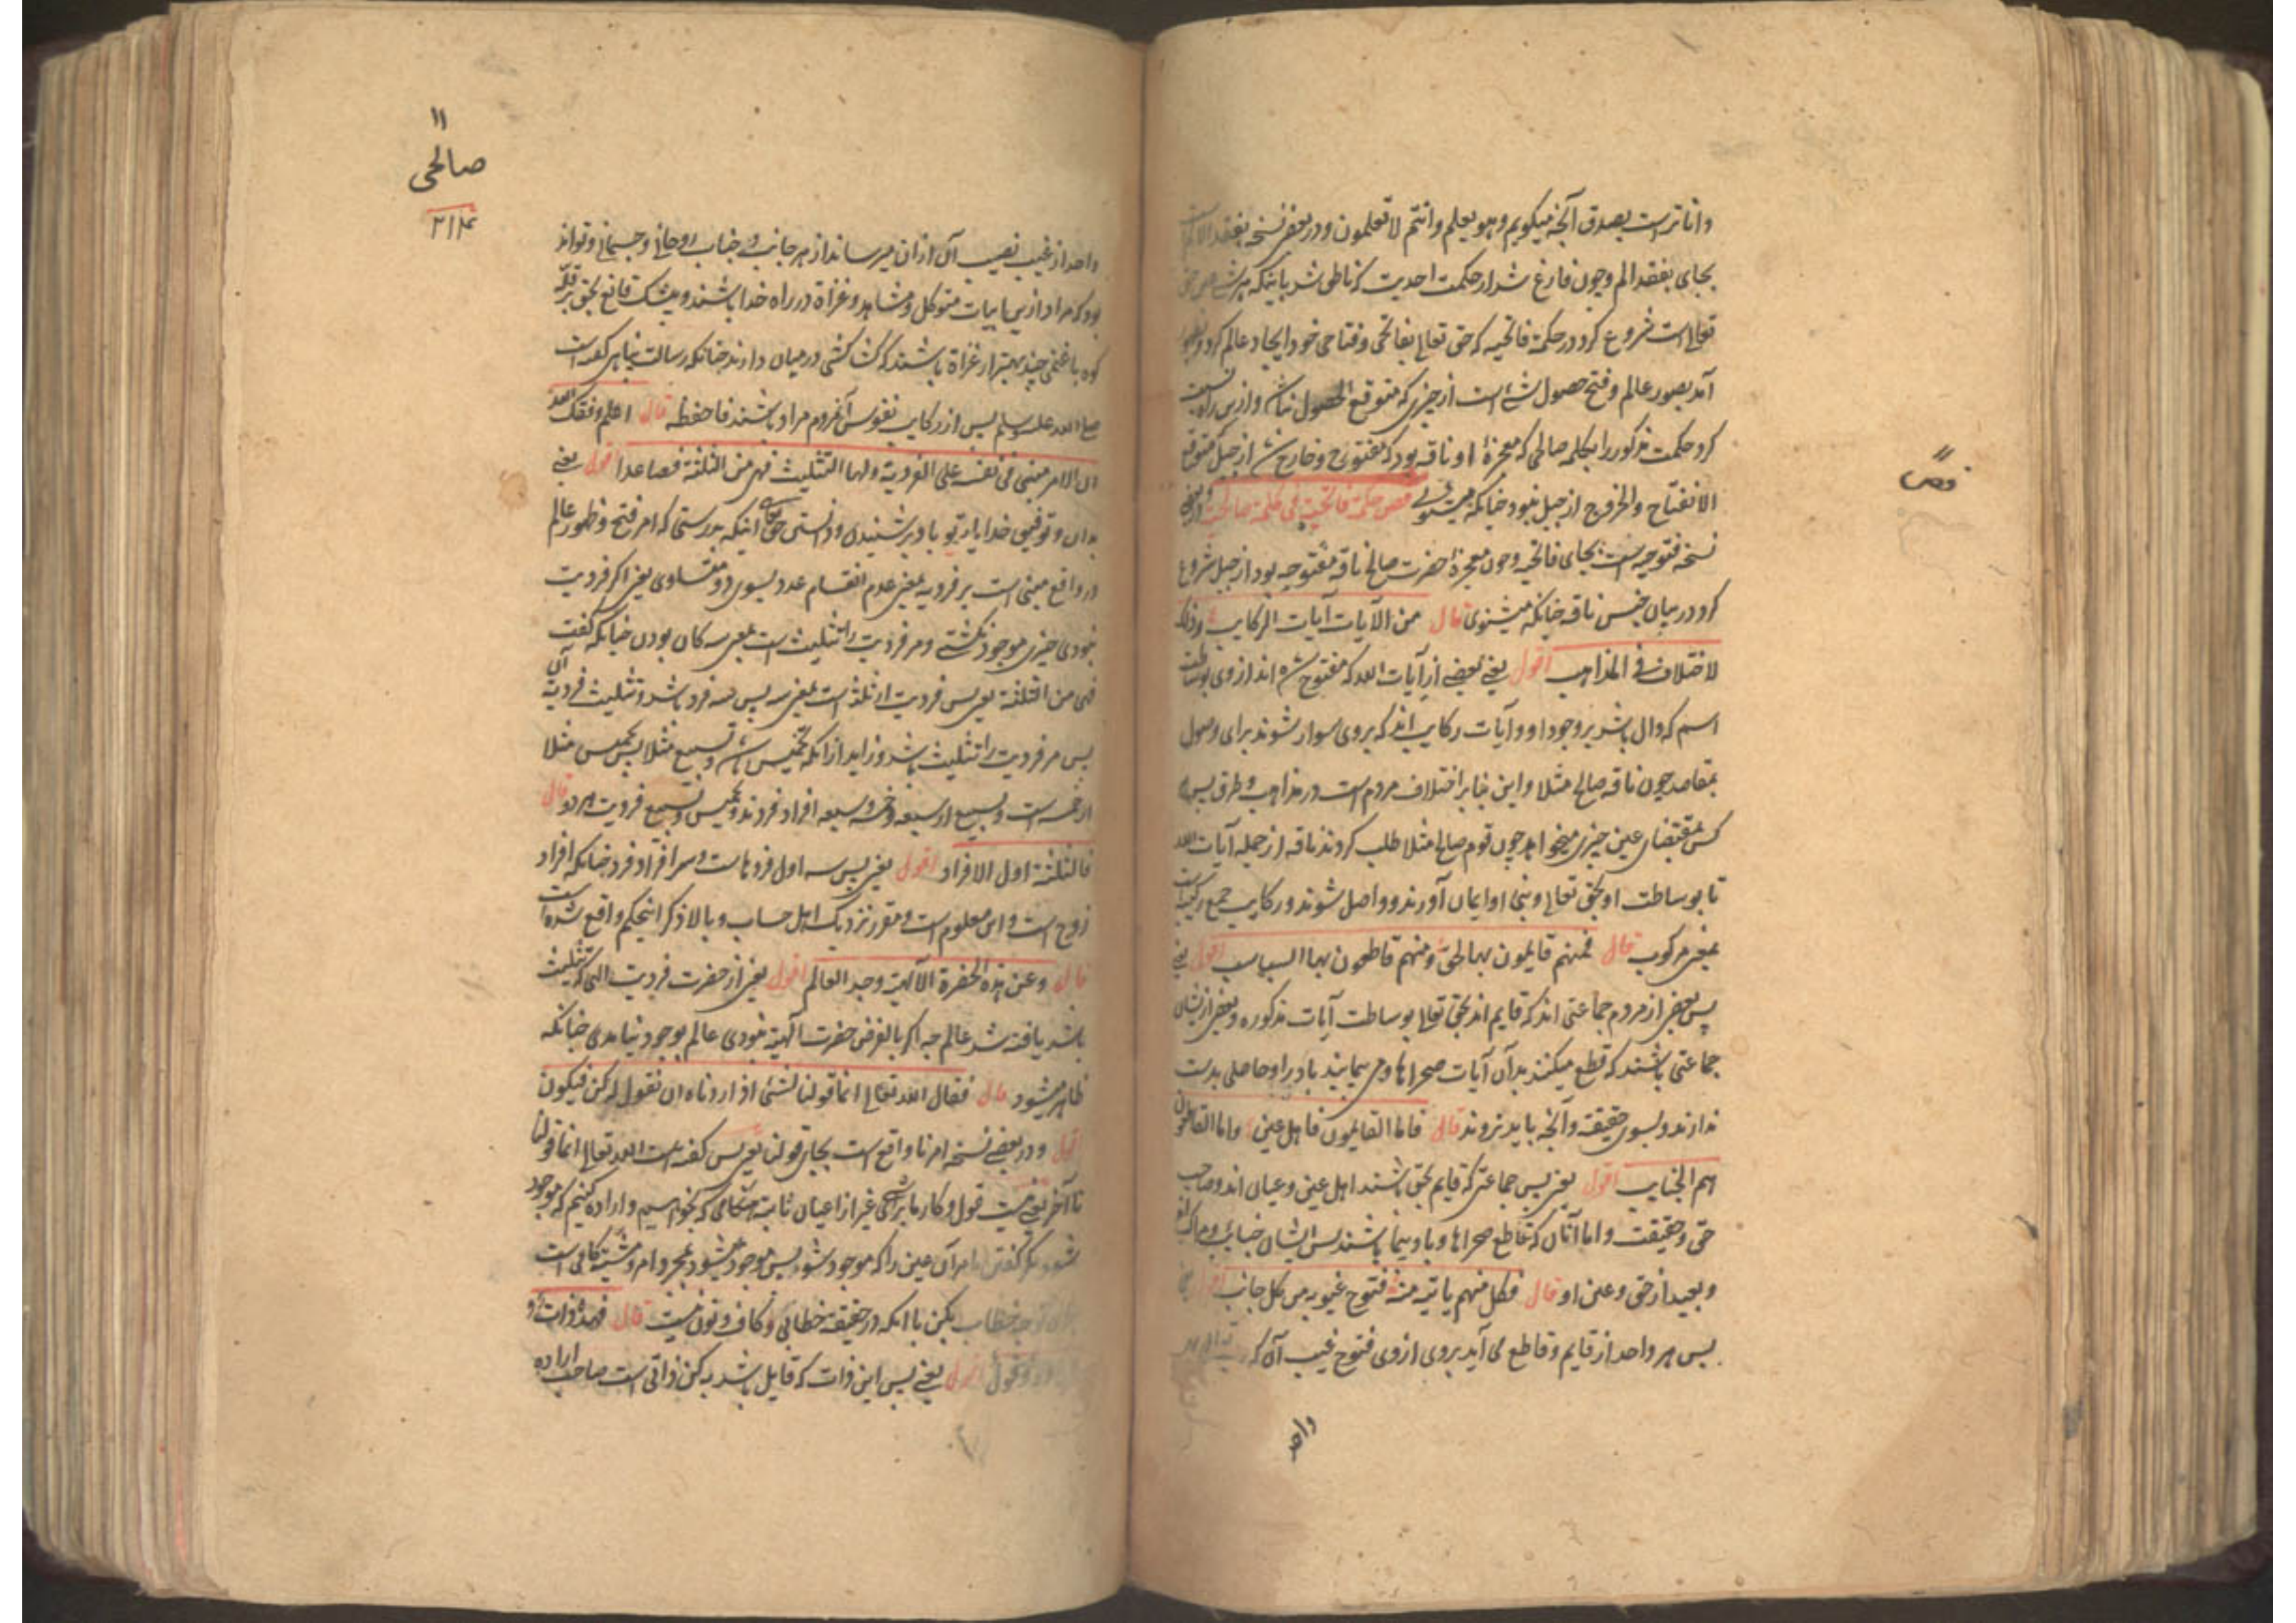 و اناترست بصدق آنچه میگویم و هو یعلم و انتم لا تعلمون و در بعض نسخه بفقد الالم است
بجای بفقد الم و چون فارغ شد از حکمت احدیت که ناطق شد باینکه هر شی عین حق
تعالی است شروع کرد در حکمة فاتحیه که حق تعالی بفاتحی و فتاحی خود ایجاد عالم کرد و
آمد بصور عالم و فتح حصول شی است از چیزی که متوقع الحصول نباشد و ازین راه نسبت
کرد حکمت مذکور را بکلمه صالحی که معجزهٔ او ناقه بود که مفتوح و خارج شد از جبل که متوقع
الانفتاح و الخروج از جبل نبود چنانکه میشنوی فص حکمة فاتحیة فی کلمة صالحیة و در بعضی
نسخه فتوحیه است بجای فاتحیه و چون معجزهٔ حضرت صالح ناقه مفتوحه بود از جبل شروع
کرد در بیان جنس ناقه چنانکه میشنوی قال من الآیات آیات الرکایب و ذلک
لاختلاف فی المذاهب اقول یعنی بعضی از آیات الله که مفتوح شده اند از وی بوساطت
اسم که دال باشد بر وجود او و آیات رکایب اند که بروی سوار شوند برای وصول
بمقاصد چون ناقه صالح مثلا و این بنابر اختلاف مردم است در مذاهب و طرق پس هر
کس بمقتضای عین چیزی میخواهد چون قوم صالح مثلا طلب کردند ناقه از جمله آیات الله
تا بوساطت او بحق تعالی و بنبی او ایمان آورند و واصل شوند و رکایب جمع رکیب است
بمعنی مرکوب قال فمنهم قایمون بها لحق و منهم قاطعون بها السباسب اقول یعنی
پس بعض از مردم جماعتی اند که قایم اند بحق تعالی بوساطت آیات مذکوره و بعض ازیشان
جماعتی باشند که قطع میکنند بدان آیات صحراها و می پیمایند بادیه را و حاصلی بدست
ندارند و بسوی حقیقة و آنچه باید نروند قال فاما القایمون فاهل عین و اما القاطعون
هم الجنایب اقول یعنی پس جماعتی که قایم بحق باشند اهل عین و عیان اند و صاحب
حق و حقیقت و اما آنان که قاطع صحراها و بادیه پیما باشند پس ایشان جنائب و
و بعید از حق و عین او قال فکل منهم یاتیه منه فتوح غیوبه من کل جانب اقول یعنی
پس هر واحد از قایم و قاطع می آید بروی از وی فتوح غیب آن که
واحد
فص
۱۱
صالحی
۲۱۴
واحد از غیب نصیب آن ازان میرساند از هر جانب و جناب روحانی و جسمانی و تواند
بود که مراد ازین متوکل و مشاهد و غزاة در راه خدا باشند و بیشک قانع بحق بر قله
کوه با غنمی چند بهتر از غزاة باشند که کشاکشی در میان دارند چنانکه رسالت پناهی گفته است
صلی الله علیه وسلم پس از رکایب نفوس آنمردم مراد باشند فاحفظه قال اعلم وفقک الله
ان الامر مبنی فی نفسه علی الفردیة و لها التثلیث فهی من الثلثة فصاعدا اقول یعنی
بدان و توفیق خدا یار تو باد بر شنیدن و دانستن حق تعالی اینکه بدرستی که امر فتح و ظهور عالم
در واقع مبنی است بر فردیة بمعنی عدم انقسام عدد بسوی دو متساوی یعنی اگر فردیت
نبودی چیزی موجود نگشتی و مر فردیت را تثلیث است بمعنی سه کان بودن چنانکه گفت
فهی من الثلثة یعنی پس فردیت از ثلثه است بمعنی سه پس سه فرد باشد و تثلیث فردیة آن
پس مر فردیت را تثلیث باشد و زاید ازانکه تخمیس باشد و تسبیع مثلا پس تخمیس مثلا
از خمسه است و تسبیع از سبعه و خمسه و سبعه افراد فردند و تخمیس و تسبیع فردیت هر دو قال
فالثلثة اول الافراد اقول یعنی پس سه اول فردهاست و سر افراد فرد چنانکه افراد
زوج است و این معلوم است و مقرر نزدیک اهل حساب و بالا ذکر اینحکم واقع شده است
قال و عن هذه الحضرة الالهیة وجد العالم اقول یعنی از حضرت فردیت الهی که تثلیث
باشد یافته شد عالم چه اگر بالفرض حضرت الهیة نبودی عالم موجود نیامدی چنانکه
ظاهر میشود قال فقال الله تعالی انما قولنا لشئ اذا اردناه ان نقول له کن فیکون
اقول و در بعضی نسخه امرنا واقع است بجای قولنا یعنی پس گفته است الله تعالی انما قولنا
تا آخر یعنی نیست قول و کار ما برای شی غیر از اعیان ثابته هنگامی که بخواهیم و اراده کنیم که موجود
شود مگر گفتن ما مر آن عین را که موجود شو پس موجود میشود بمجرد امر و مشیته کافی است
خطاب بکن با آنکه در حقیقة خطابی و کاف و نون نیست قال فهذه ذات
و قول اقول یعنی پس این ذات که قایل باشد به کن ذاتی است صاحب اراده